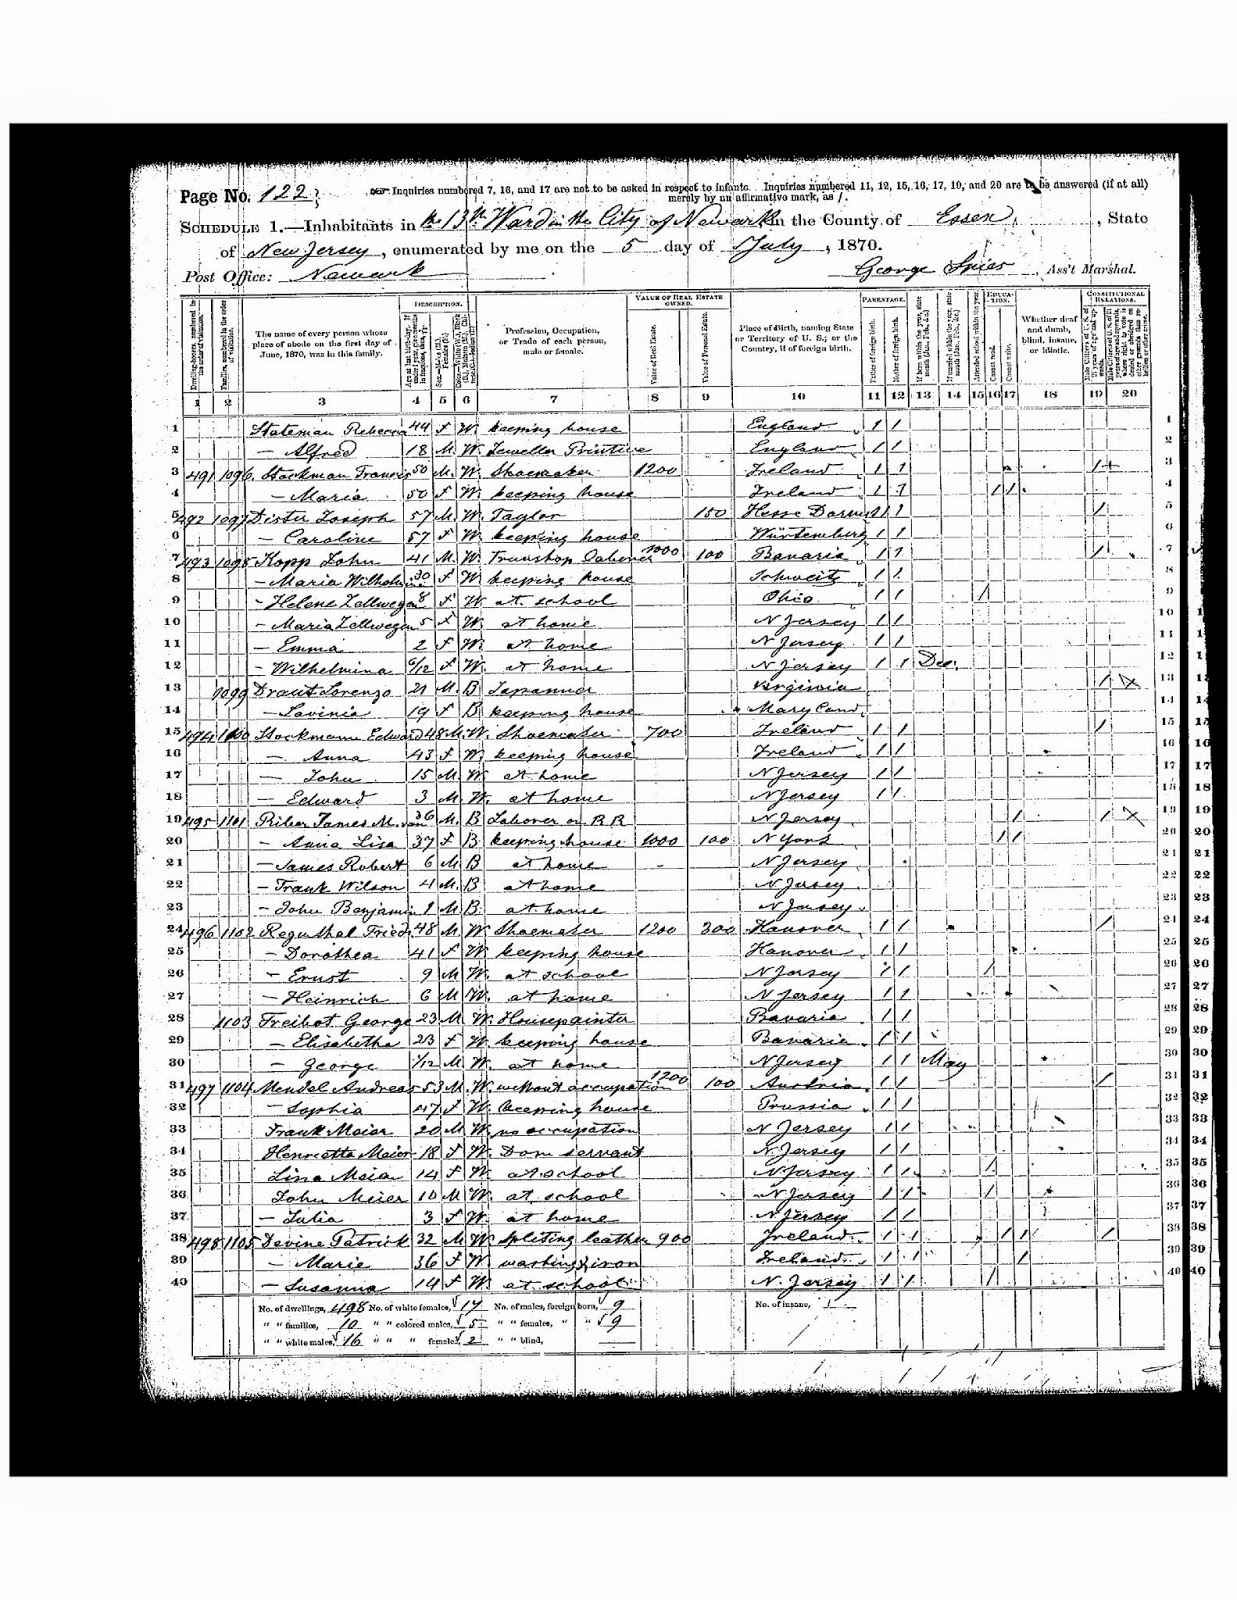 Page No. 122
Inquiries numbered 7, 16, and 17 are not to be asked in respect to infants. Inquiries numbered 11, 12, 15, 16, 17, 19, and 20 are to be answered (if at all)
merely by an affirmative mark, as /.
Schedule 1.—Inhabitants in the 13th Ward in the City of Newark in the County of Essex, State
of New Jersey, enumerated by me on the 5 day of July, 1870.
Post Office: Newark George Spies, Ass't Marshal.
DESCRIPTION. VALUE OF REAL ESTATE OWNED. PARENTAGE. EDUCATION. CONSTITUTIONAL RELATIONS.
Dwelling-houses, numbered in the order of visitation. Families, numbered in the order of visitation. The name of every person whose place of abode on the first day of June, 1870, was in this family. Profession, Occupation, or Trade of each person, male or female. Value of Real Estate. Value of Personal Estate. Place of Birth, naming State or Territory of U. S.; or the Country, if of foreign birth. Father of foreign birth. Mother of foreign birth. Attended school within the year. Cannot read. Cannot write. Whether deaf and dumb, blind, insane, or idiotic.
1 2 3 4 5 6 7 8 9 10 11 12 13 14 15 16 17 18 19 20
1 Stateman Rebecca 44 F W keeping house England / / 1
2 — Alfred 18 M W England / / 2
3 491 1096 Stockman Francis 50 M W Shoemaker 1200 Ireland / / / 3
4 — Maria 50 F W keeping house Ireland / / / / 4
5 492 1097 Dister Joseph 57 M W Taylor 150 Hesse / / / 5
6 — Caroline 57 F W keeping house Würtemberg / / 6
7 493 1098 Kopp John 41 M W 1000 100 Bavaria / / / 7
8 — Maria 30 F W keeping house Schweitz / / 8
9 — Helene Zellweger 8 F W at school Ohio / / / 9
10 — Maria Zellweger 5 F W at home N Jersey / / 10
11 — Emma 2 F W at home N Jersey / / 11
12 — Wilhelmina 6/12 F W at home N Jersey / / Dec. 12
13 1099 Lorenzo 21 M B Japanner Virginia / X 13
14 — Lavinia 19 F B keeping house Maryland 14
15 494 1100 Stockmann Edward 48 M W Shoemaker 700 Ireland / / / 15
16 — Anna 43 F W keeping house Ireland / / 16
17 — John 15 M W at home N Jersey / / 17
18 — Edward 3 M W at home N Jersey / / 18
19 495 1101 James M. 36 M B Laborer on RR N Jersey / / X 19
20 — Anna Lisa 37 F B keeping house 1000 100 N York / / 20
21 — James Robert 6 M B at home N Jersey 21
22 — Frank Wilson 4 M B at home N Jersey 22
23 — John Benjamin 1 M B at home N Jersey 23
24 496 1102 48 M W Shoemaker 1200 300 Hanover / / / 24
25 — Dorothea 41 F W keeping house Hanover / / 25
26 — Ernst 9 M W at school N Jersey / / / 26
27 — Heinrich 6 M W at home N Jersey / / 27
28 1103 George 23 M W Housepainter Bavaria / / 28
29 — Elisabetha 23 F W keeping house Bavaria / / 29
30 — George 1/12 M W at home N Jersey / / May 30
31 497 1104 Mendel Andreas 53 M W without occupation 1200 100 Austria / / / 31
32 — Sophia 47 F W keeping house Prussia / / 32
33 Frank Maier 20 M W no occupation N Jersey / / 33
34 Henrietta Maier 18 F W Dom servant N Jersey / / 34
35 Lina Maier 14 F W at school N Jersey / / / 35
36 John Meier 10 M W at school N Jersey / / / 36
37 — Julia 3 F W at home N Jersey / / 37
38 498 1105 Devine Patrick 32 M W spliting leather 900 Ireland / / / / / 38
39 — Marie 36 F W Ireland / / / 39
40 — Susanna 14 F W at school N. Jersey / / / 40
No. of dwellings, 498 No. of white females, 17 No. of males, foreign born, 9 No. of insane,
" " families, 10 " " colored males, 5 " " females, " " 9
" " white males, 16 " " " females, 2 " " blind,